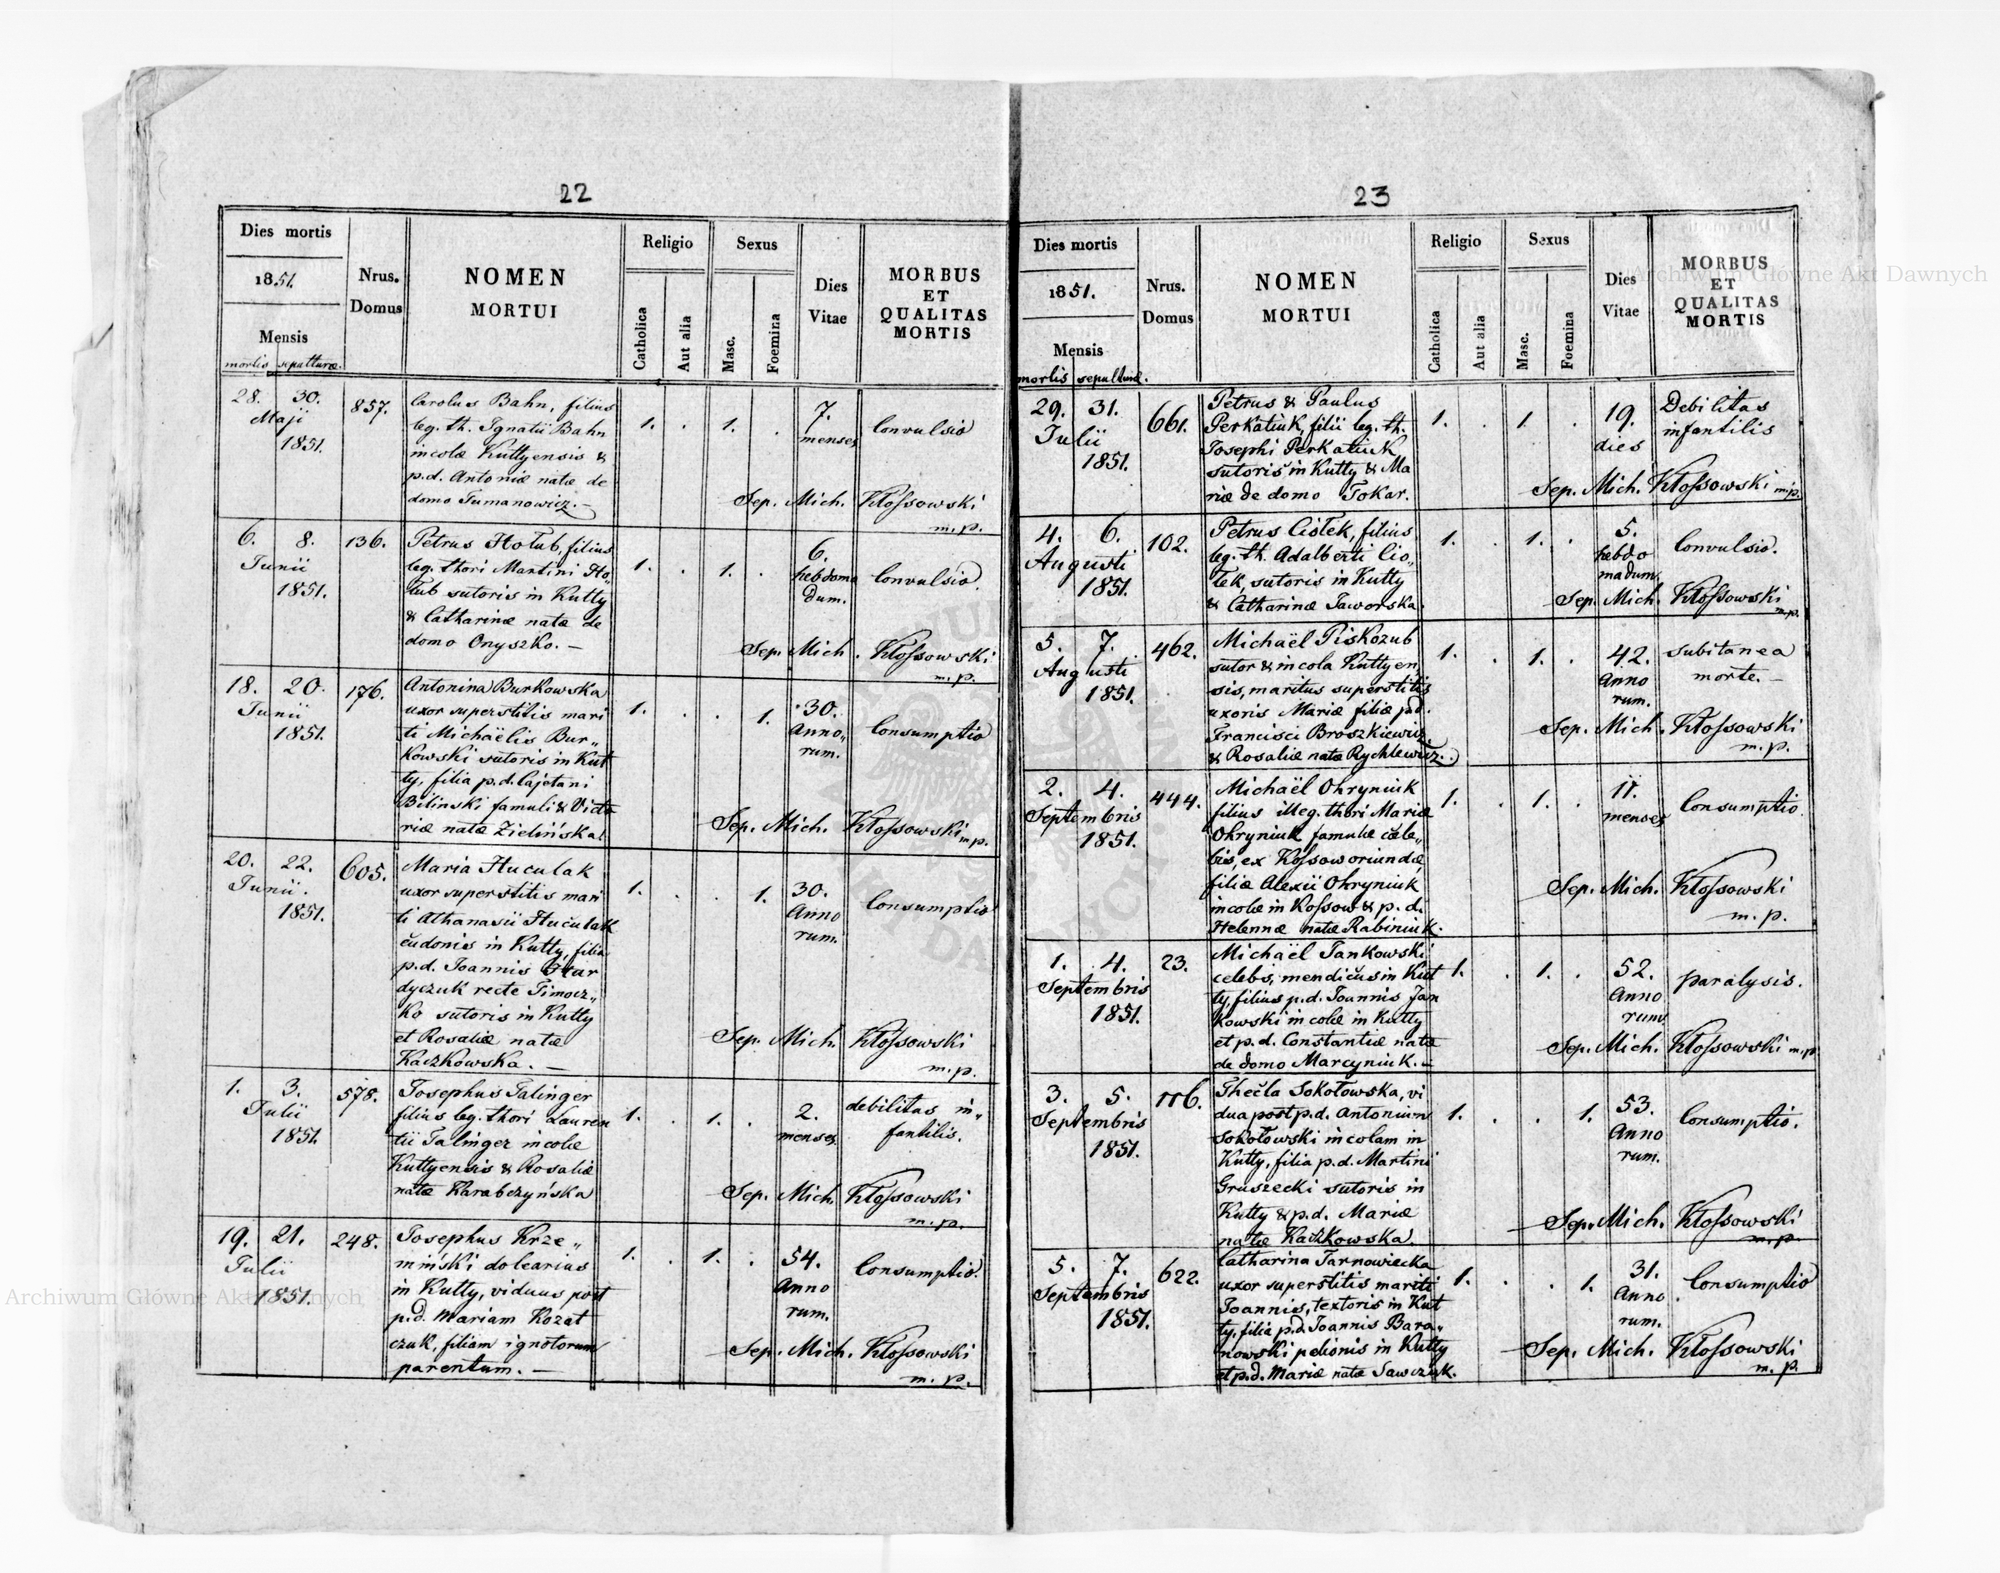 22
Dies mortis
1851.
Mensis
mortis sepulturæ.
Nrus.
Domus
NOMEN
MORTUI
Religio
Catholica
Aut alia
Sexus
Masc.
Foemina
Dies
Vitae
MORBUS
ET
QUALITAS
MORTIS
28. 30.
Maji
1851.
857.
Carolus Bahn, filius
leg. th. Ignatii Bahn
incolæ Kuttyensis &
p.d. Antoniæ natæ de
domo Tumanowicz.—
1. . 1. .
7.
menses
Convulsio
Sep. Mich. Kłossowski
m.p.
6. 8.
Junii
1851.
136.
Petrus Hołub, filius
leg. thori Martini Ho-
łub sutoris in Kutty
& Catharinæ natæ de
domo Onyszko.—
1. . 1. .
6.
hebdoma
dum.
Convulsio
Sep. Mich. Kłossowski
m.p.
18. 20.
Junii
1851.
176.
Antonina Burkowska
uxor superstitis mari
ti Michaëlis Bur„
kowski sutoris in Kut
ty, filia p.d. Cajetani
Biliński famuli & Victo
riæ natæ Zielińska.
1. . . 1.
30.
Anno„
rum.
Consumptio
Sep. Mich. Kłossowski m.p.
20. 22.
Junii.
1851.
605.
Maria Huculak
uxor superstitis mari
ti Athanasii Huculak
cudonis in Kutty, filia
p.d. Joannis Har
dyczuk recte Timocz„
ko sutoris in Kutty
et Rosaliæ natæ
Kaczkowska.—
1. . . 1.
30.
Anno
rum.
Consumptio
Sep. Mich. Kłossowski
m.p.
1. 3.
Julii
1851.
578.
Josephus Talinger
filius leg. thori Lauren
tii Talinger incolæ
Kuttyensis & Rosaliæ
natæ Karabczyńska
1. . 1. .
2.
menses
debilitas in„
fantilis.
Sep. Mich. Kłossowski
m.p.
19. 21.
Julii
1851.
248.
Josephus Krze„
miński dolearius
in Kutty, viduus post
p.d. Mariam Kozat
czuk, filiam ignotorum
parentum.—
1. . 1. .
54.
Anno
rum.
Consumptio.
Sep. Mich. Kłossowski
m.p.
23
Dies mortis
1851.
Mensis
mortis sepulturæ.
Nrus.
Domus
NOMEN
MORTUI
Religio
Catholica
Aut alia
Sexus
Masc.
Foemina
Dies
Vitae
MORBUS
ET
QUALITAS
MORTIS
29. 31.
Julii
1851.
661.
Petrus & Paulus
Perkatiuk, filii leg. th.
Josephi Perkatiuk
sutoris in Kutty & Ma
riæ de domo Tokar.
1. . 1. .
19.
dies
Debilitas
infantilis
Sep. Mich. Kłossowski m.p.
4. 6.
Augusti
1851.
102.
Petrus Ciołek, filius
leg. th. Adalberti Cio-
łek, sutoris in Kutty
& Catharinæ Jaworska.
1. . 1. .
5.
hebdo
madum.
Convulsio.
Sep. Mich. Kłossowski
m.p.
5. 7.
Augusti
1851.
462.
Michaël Piskozub
sutor & incola Kuttyen
sis, maritus superstitis
uxoris Mariæ filiæ p.d.
Francisci Broszkiewicz
& Rosaliæ natæ Rychlewicz.
1. . 1. .
42.
Anno
rum.
subitanea
morte.—
Sep. Mich. Kłossowski
m.p.
2. 4.
Septembris
1851.
444.
Michaël Ohryniuk
filius illeg. thori Mariæ
Ohryniuk famulæ cæle„
bis, ex Kossow oriundæ,
filiæ Alexii Ohryniuk
incolæ in Kossow & p.d.
Helennæ natæ Rabiniuk.
1. . 1. .
11.
menses
Consumptio
Sep. Mich. Kłossowski
m.p.
1. 4.
Septembris
1851.
23.
Michaël Jankowski
celebs, mendicus in Kut
ty, filius p.d. Joannis Jan
kowski incolæ in Kutty
et p.d. Constantiæ natæ
de domo Marcyniuk.—
1. . 1. .
52.
Anno
rum
paralysis.
Sep. Mich. Kłossowski m.p.
3. 5.
Septembris
1851.
116.
Thecla Sokołowska, vi
dua post p.d. Antonium
Sokołowski incolam in
Kutty, filia p.d. Martini
Gruszecki sutoris in
Kutty & p.d. Mariæ
natæ Kaczkowska.
1. . . 1.
53.
Anno
rum.
Consumptio.
Sep. Mich. Kłossowski
m.p.
5. 7.
Septembris
1851.
622.
Catharina Tarnowiecka
uxor superstitis mariti
Joannis, textoris in Kut
ty, filia p.d. Joannis Bara„
nowski pelionis in Kutty
et p.d. Mariæ natæ Sawczuk.
1. . . 1.
31.
Anno
rum.
Consumptio
Sep. Mich. Kłossowski
m.p.
Archiwum Główne Akt Dawnych
Archiwum Główne Akt Dawnych